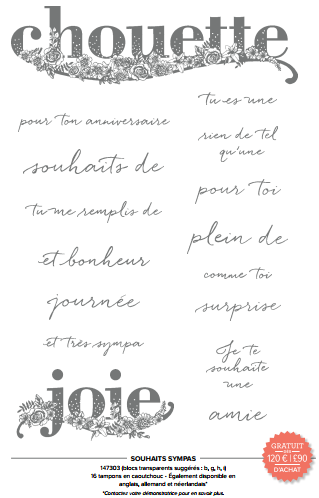 chouette
pour ton anniversaire
souhaits de
tu me remplis de
et bonheur
journée
et très sympa
joie
tu es une
rien de tel
qu'une
pour toi
plein de
comme toi
surprise
Je te
souhaite
une
amie
SOUHAITS SYMPAS
147303 (blocs transparents suggérés : b, g, h, i)
16 tampons en caoutchouc - Également disponible en
anglais, allemand et néerlandais*
*Contactez votre démonstratrice pour en savoir plus.
GRATUIT
DÈS
120 € | £90
D'ACHAT